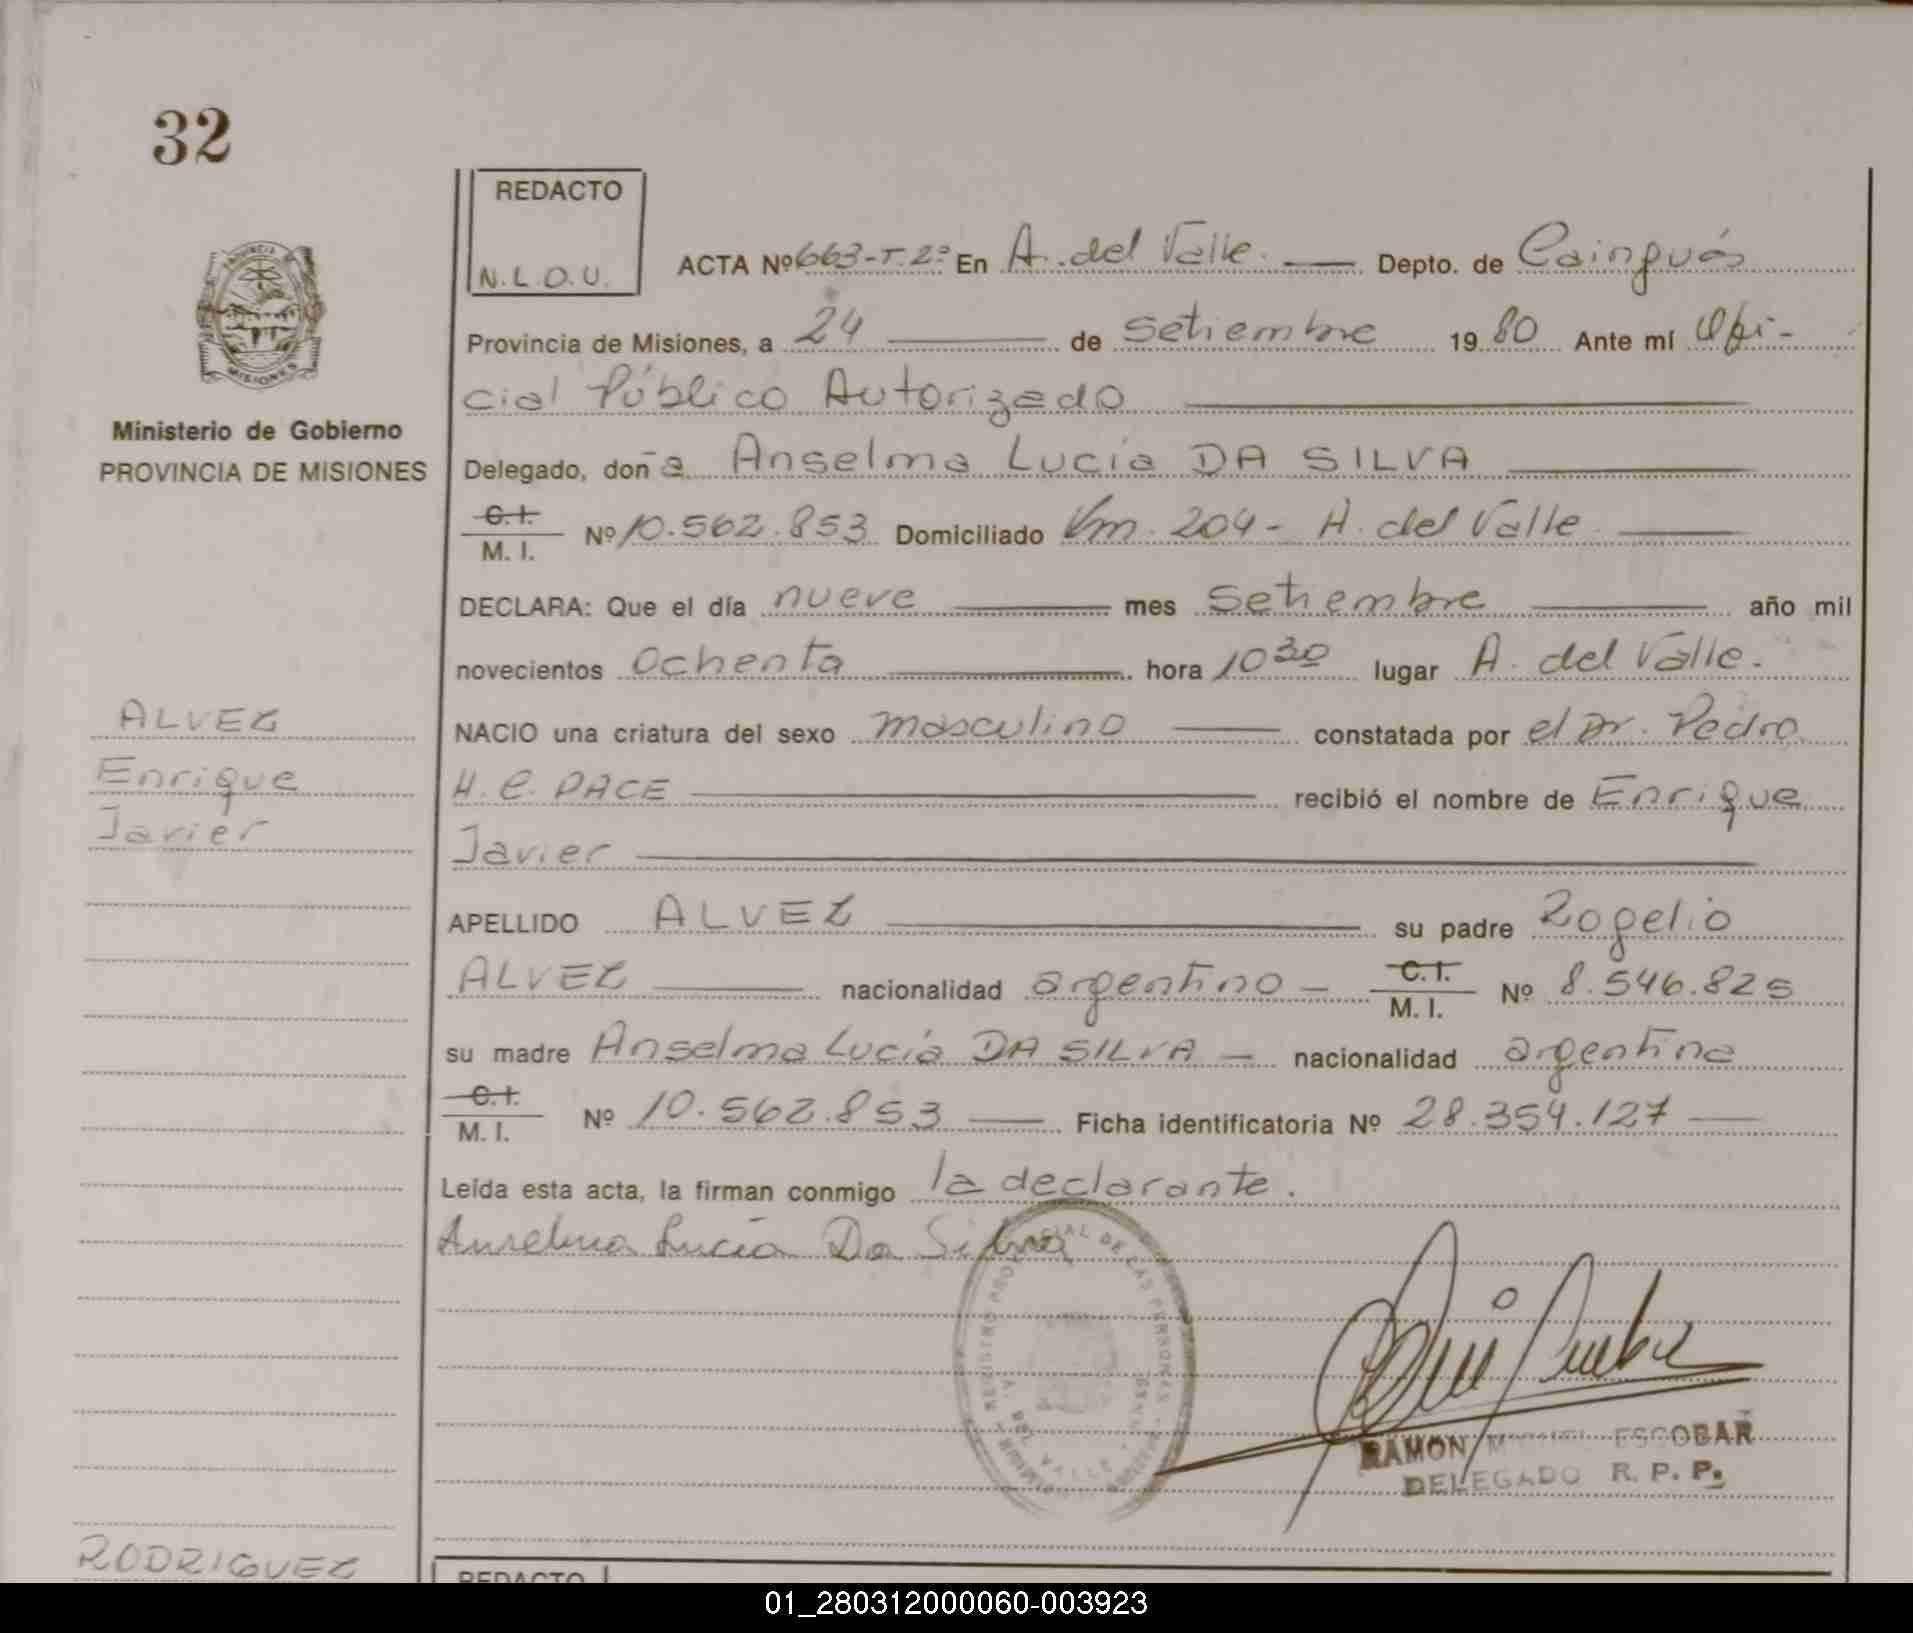 32
REDACTO
N.L.O.U.
ACTA Nº 663-T.2º En A. del Valle. Depto. de Cainguás
Provincia de Misiones, a 24 de Setiembre 1980 Ante mí Ofi-
cial Público Autorizado
Ministerio de Gobierno
PROVINCIA DE MISIONES
Delegado, doña Anselma Lucía DA SILVA
C.I.
M. I. Nº 10.562.853 Domiciliado Km. 204 - A. del Valle
DECLARA: Que el día nueve mes Setiembre año mil
novecientos Ochenta hora 10 30 lugar A. del Valle.
ALVEZ
Enrique
Javier
NACIO una criatura del sexo masculino constatada por el Dr. Pedro
H. C. PACE recibió el nombre de Enrique
Javier
APELLIDO ALVEZ su padre Rogelio
ALVEZ nacionalidad argentino - C.I.
M. I. Nº 8.546.825
su madre Anselma Lucía DA SILVA - nacionalidad argentina
C.I.
M. I. Nº 10.562.853 Ficha identificatoria Nº 28.354.127
Leída esta acta, la firman conmigo la declarante.
Anselma Lucía Da Silva
A. DEL VALLE
RAMON MIGUEL ESCOBAR
DELEGADO R. P. P.
RODRIGUEZ
REDACTO
01_280312000060-003923